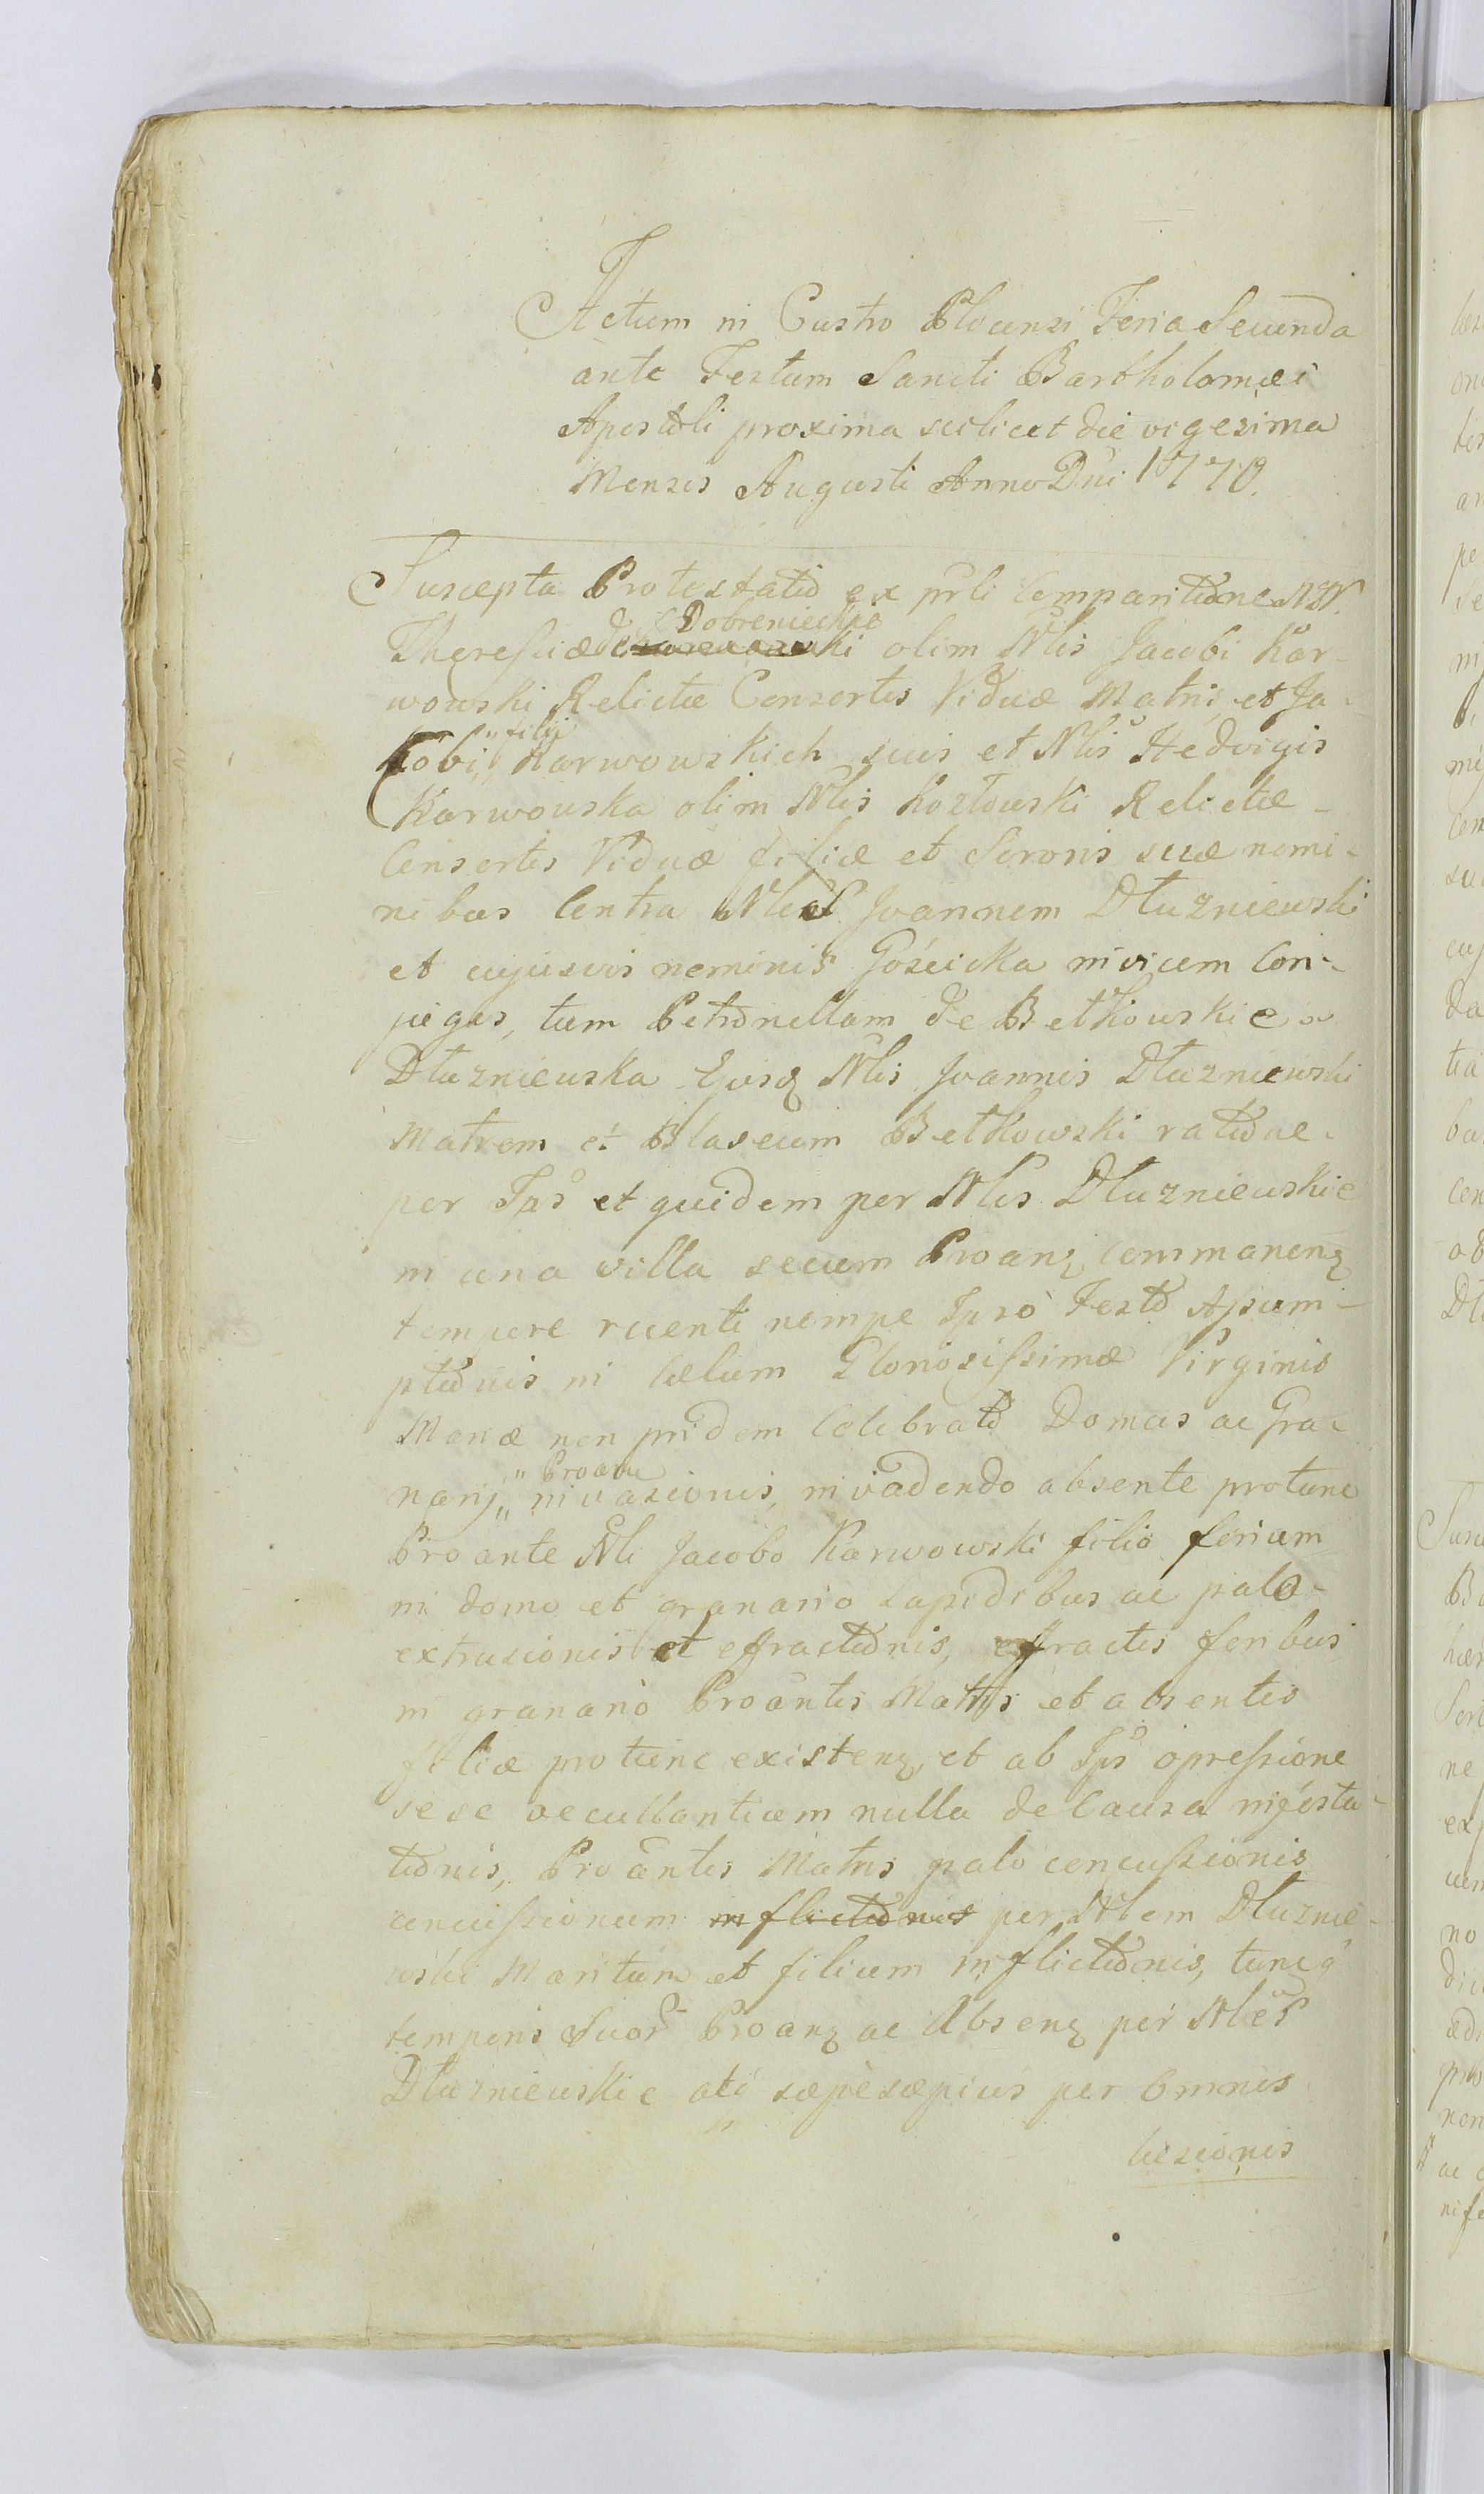 Actum in Castro Plocensi Feria Secunda
ante Festum Sancti Bartholomæi
Apostoli proxima scilicet die vigesima
Mensis Augusti Anno Dni 1770.
Suscepta Protestatio ex pñli Comparitione NN.
Dobrenieckie
Theressiæ de olim Nlis Jacobi Kar-
wowski Relictæ Consortis Viduæ Matris et Ja-
"filij
cobi,, Karwowskich suis et Nlis Hedvigis
Karwowska olim Nlis Kozłowski Relictæ
Consortis Viduæ filiæ et Sororis suæ nomi-
nibus Contra Nles Joannem Dłuzniewski
et cujusvis nominis Gościcka invicem Con-
juges, tum Petronellam de Betkowskie
Dłuzniewska Ejusq Nlis Joannis Dłuzniewski
Matrem et Blasium Betkowski ratione
per Ipsos et quidem per Nles Dłuzniewskie
in una villa secum Proanz commanenz
tempore recenti nempe Ipso Festo Assum-
ptionis in Cœlum Gloriosissimæ Virginis
Mariæ non pridem Celebrato Domus ac Gra-
" Proanu
narij,, invasionis, invadendo absente protunc
Proante Nli Jacobo Karwowski filio forium
in domo et granario Lapidibus ac palo
extrusionis et effractionis, effractis foribus
in granario Proantis Matris et absentis
filiæ protunc existenz, et ab Ipsos opressione
sese occultantium nulla de Causa infesta-
tionis, Proantis Matris palo concussionis
concussionum inflictionis per Nlem Dłuznie-
wski Maritum et filium inflictionis, tuncq
temporis Suor Proanz ac Absenz per Nles
Dłuzniewskie atq sæpesæpius per Omnis
læsionis